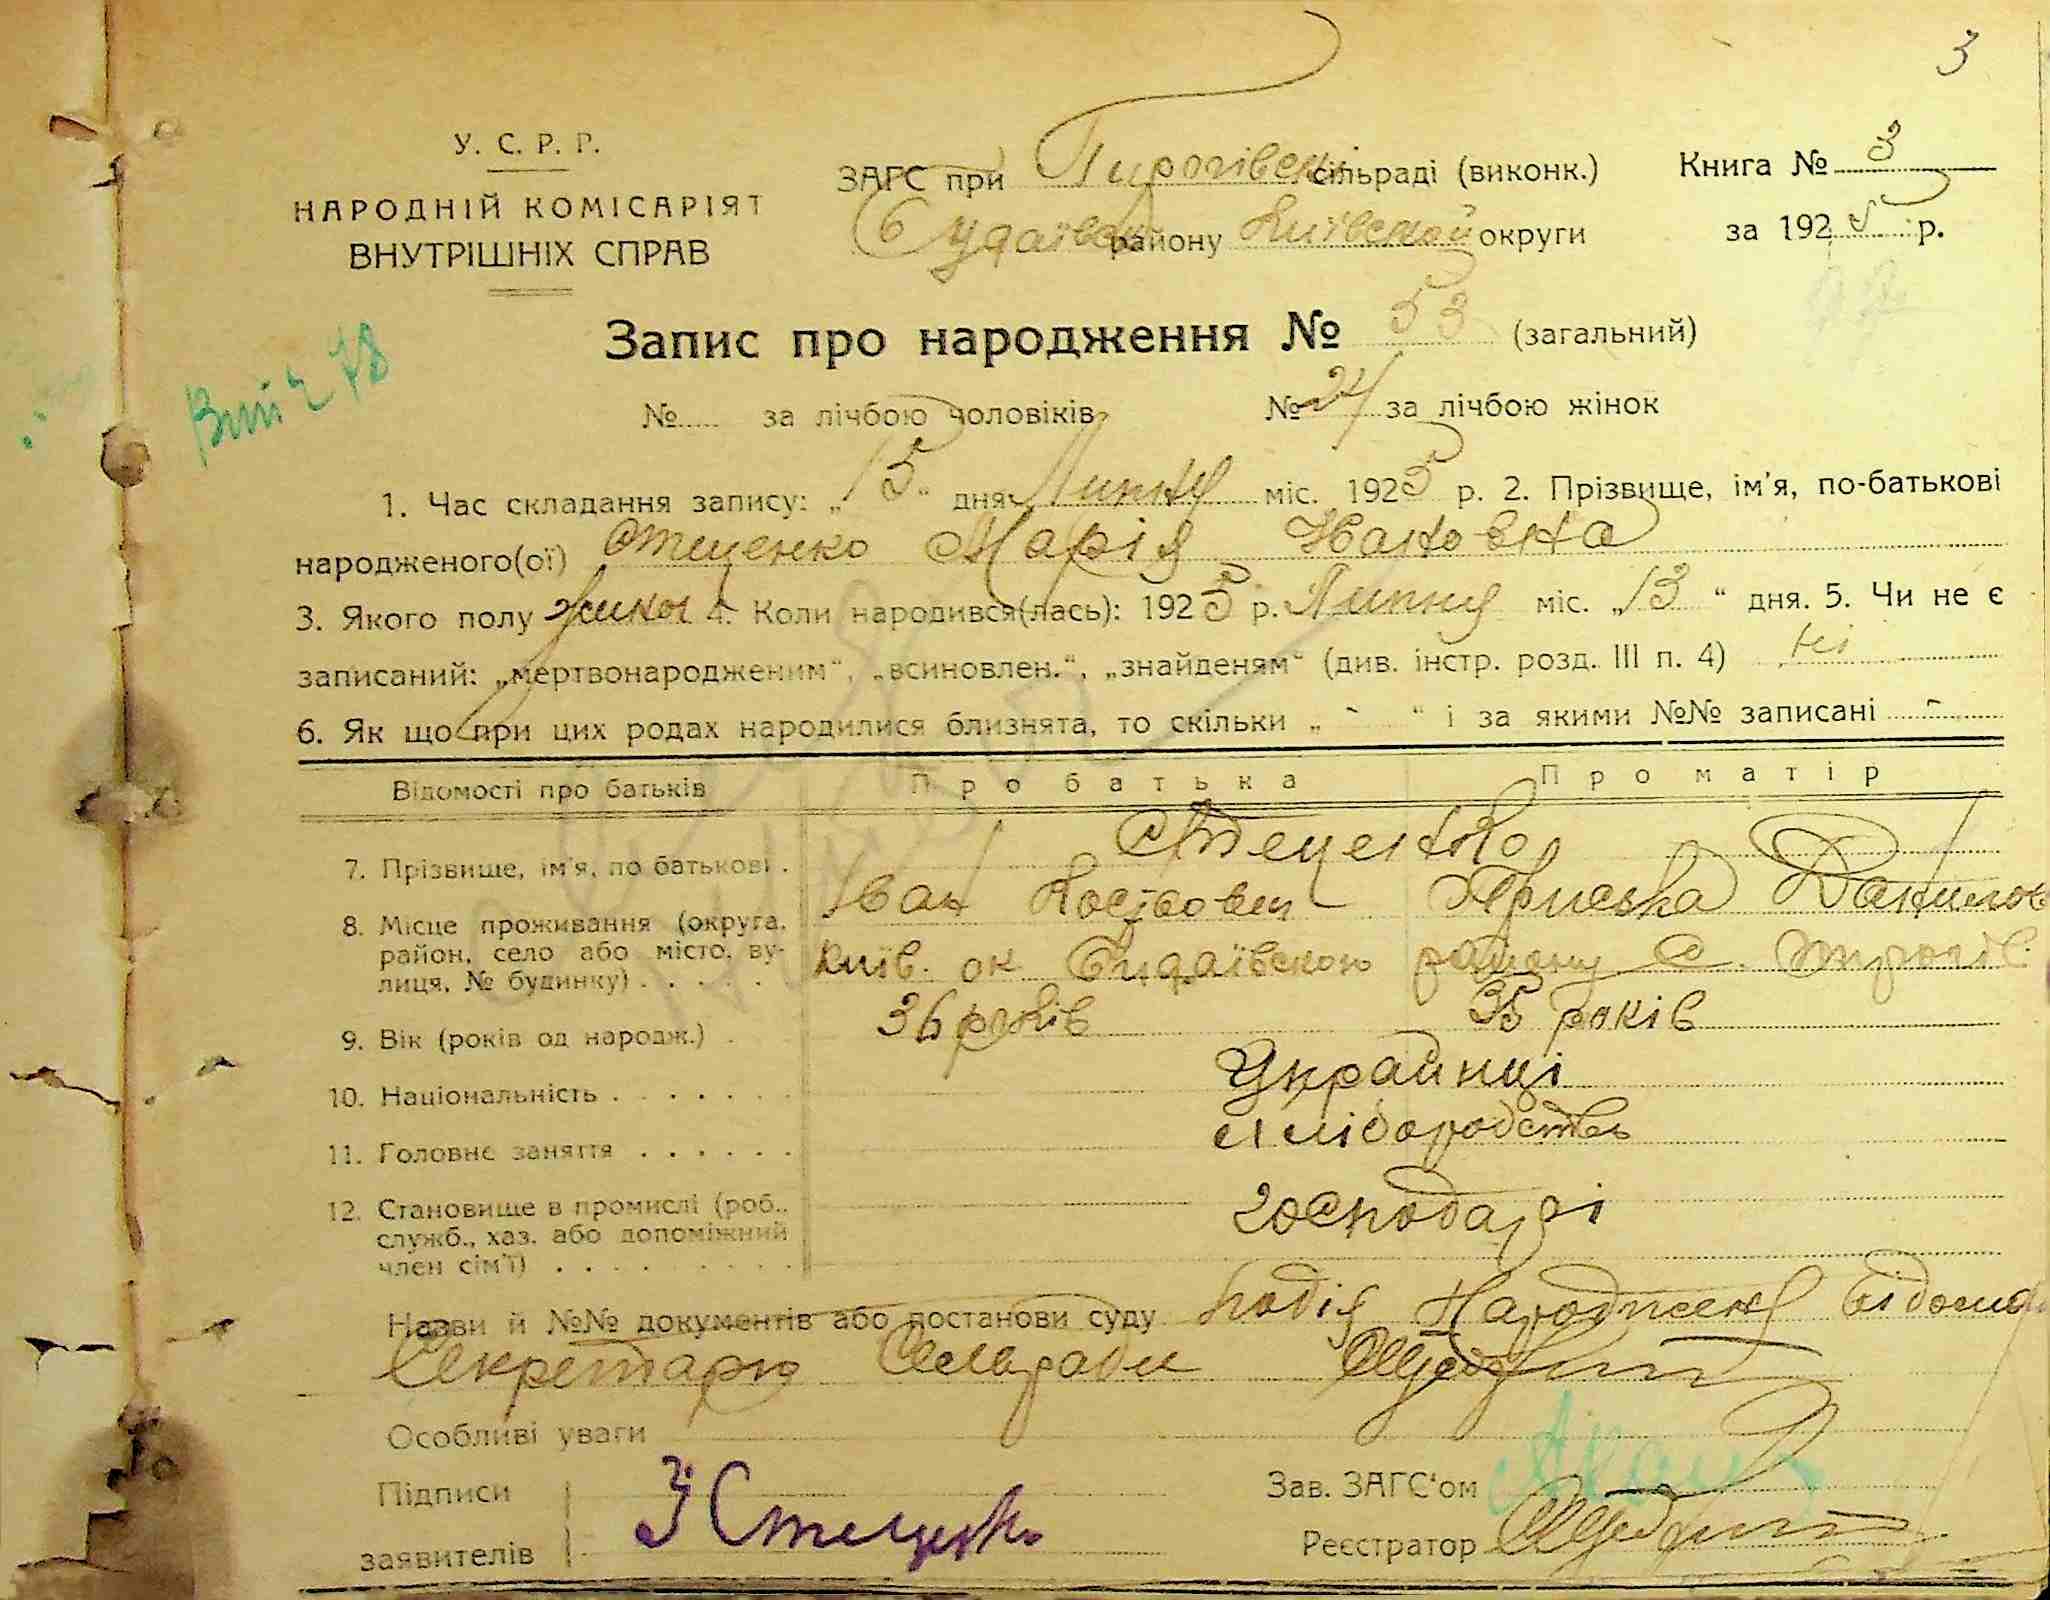 3
У. С. Р. Р.
НАРОДНІЙ КОМІСАРІЯТ
ВНУТРІШНІХ СПРАВ
ЗАГС при Пирогівськ сільраді (виконк.)
Будаївськ району Київской округи
Книга № 3
за 1925 р.
Запис про народження № 53 (загальний)
№ за лічбою чоловіків № 24 за лічбою жінок
1. Час складання запису: „15“ дня Липня міс. 1925 р. 2. Прізвище, ім'я, по-батькові
народженого(ої) Стеценко Марія Ивановна
3. Якого полу жиноч 4. Коли народився(лась): 1925 р. Липня міс. „13“ дня. 5. Чи не є
записаний: „мертвонародженим“, „всиновлен.“, „знайденям“ (див. інстр. розд. III п. 4) ні
6. Як що при цих родах народилися близнята, то скільки „ - “ і за якими №№ записані -
Відомості про батьків Про батька Про матір
7. Прізвище, ім'я, по батькові . Стеценко
Іван Костьович Ариська Данилов
8. Місце проживання (округа, район, село або місто, вулиця, № будинку) . . . . . Київ. ок Будаївского району с. Пирогів.
9. Вік (років од народж.) . 36 років 35 років
10. Національність . . . . . . . Українці
11. Головне заняття . . . . . . хліборобство
12. Становище в промислі (роб., служб., хаз. або допоміжний член сім'ї) . . . . . . . . . господарі
Назви й №№ документів або постанови суду Подія Народженя відома
Секретарю Сельради
Особливі уваги
Підписи
заявителів
Стеценко
Зав. ЗАГС'ом
Реєстратор